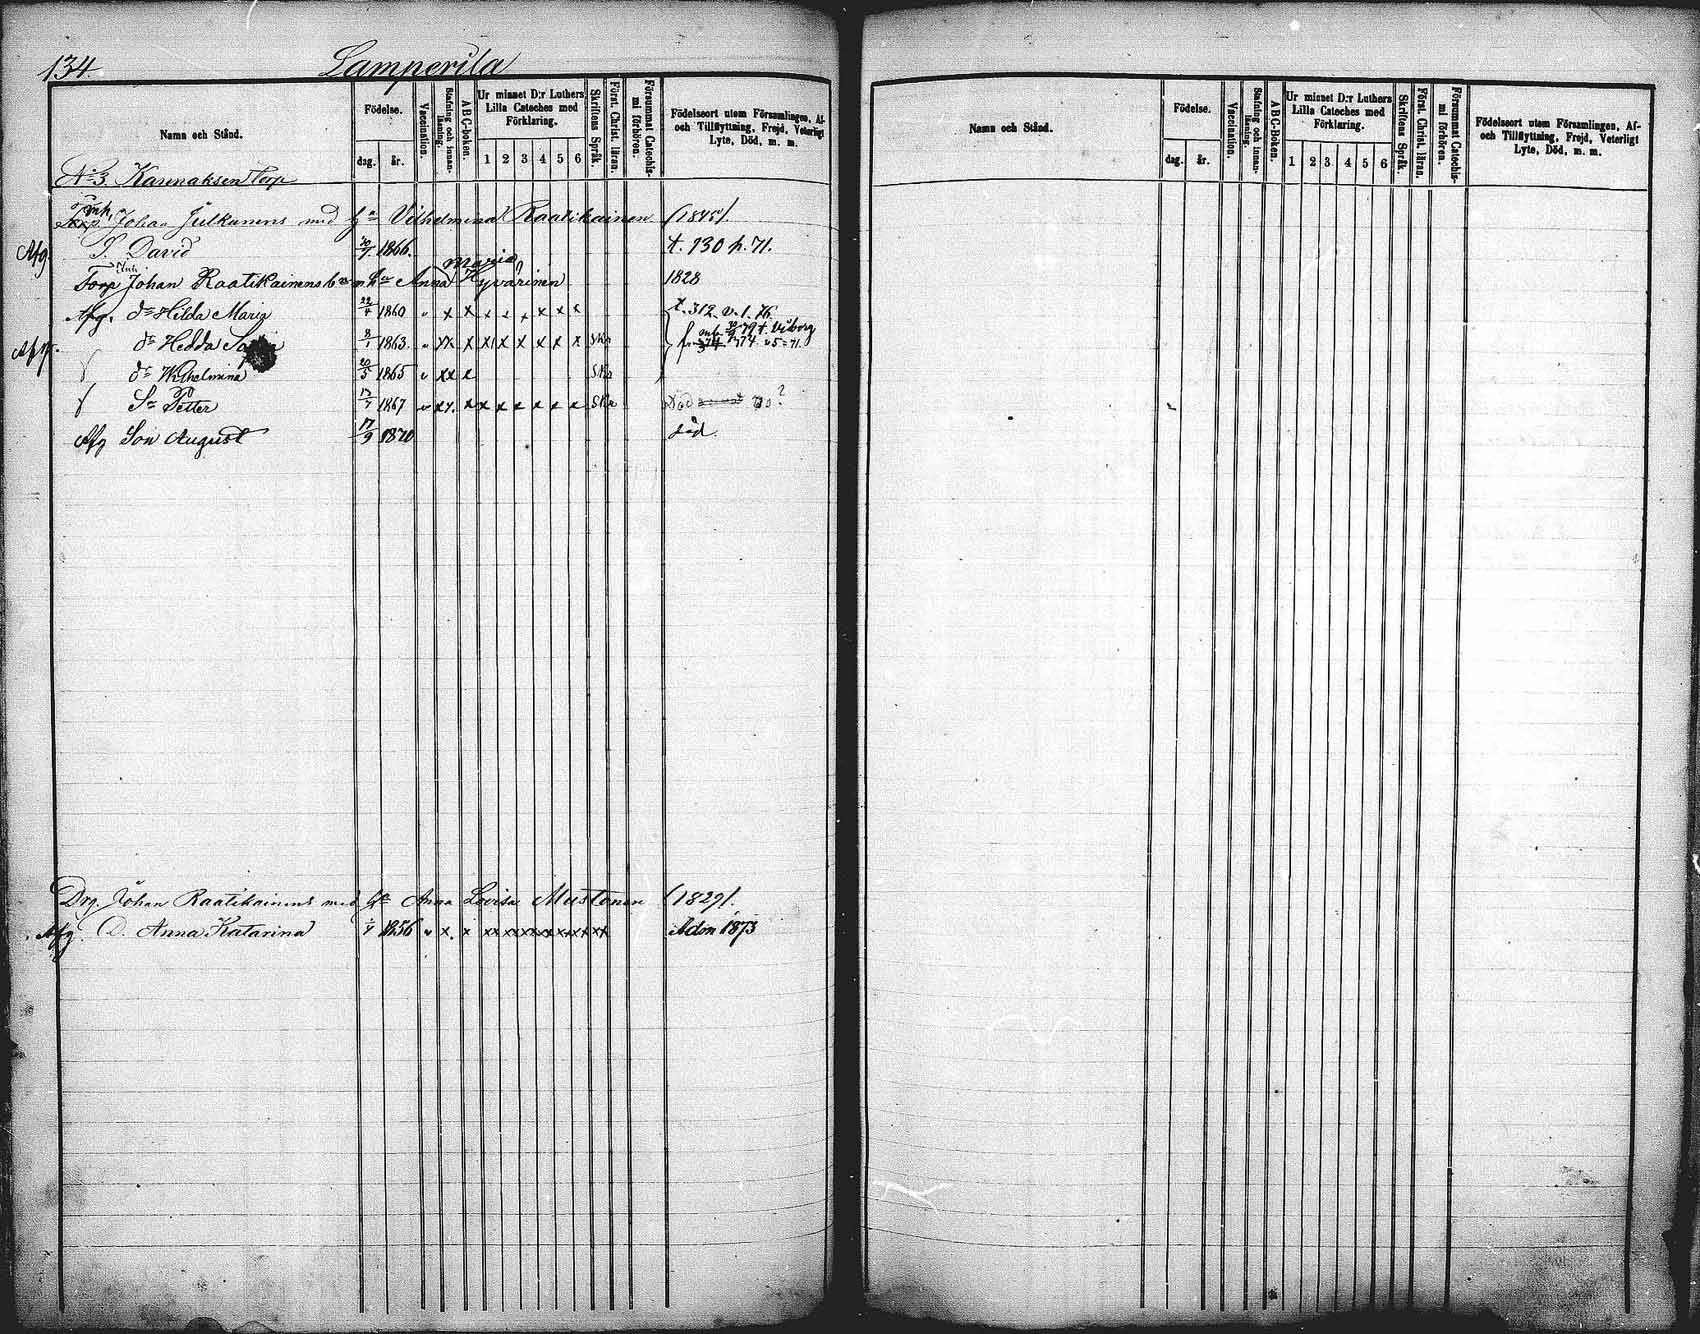 134.
Lamperila
Namn och Stånd.
Födelse.
dag. år.
Vaccination.
Stafning och innanläsning.
ABC-boken.
Ur minnet D:r Luthers Lilla Cateches med Förklaring.
1 2 3 4 5 6
Skriftens Språk.
Först. Christ. läran.
Försummat Catechismi förhören.
Födelseort utom Församlingen, Af- och Tillflyttning, Frejd, Veterligt Lyte, Död, m. m.
N:o 3. Torp
Johan Julkunens med h:u Vilhelmina Raatikainen (1845).
Afg. S. David 1866. t. 130 p. 71.
Maria
Torp Johan Raatikainens Anna Hyvärinen 1828
Afg. d:r Hilda Maria 22/4 1860 " x x x x x x x x t. 312 v. 1. 76.
d:r Hedda 8/1 1863. " xx. x x x x x x x Viborg
d:r Wilhelmina 20/5 1865 x x x
S:n Petter 13/7 1867 x x. x x x x x x x Död ?
Afg Son August 17/9 1870 död.
Drg. Johan Raatikainens med h:u Anna Lovisa Mustonen (1829).
Afg. D. Anna Katarina 1856 " x. x xx xx xx xx xx xx xx Adm 1873
Namn och Stånd.
Födelse.
dag. år.
Vaccination.
Stafning och innanläsning.
ABC-boken.
Ur minnet D:r Luthers Lilla Cateches med Förklaring.
1 2 3 4 5 6
Skriftens Språk.
Först. Christ. läran.
Försummat Catechismi förhören.
Födelseort utom Församlingen, Af- och Tillflyttning, Frejd, Veterligt Lyte, Död, m. m.